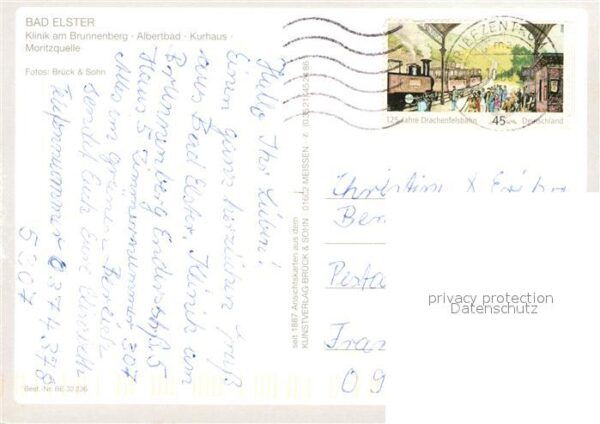 BAD ELSTER
Klinik am Brunnenberg · Albertbad · Kurhaus ·
Moritzquelle
Fotos: Brück & Sohn
Hallo Ihr Lieben!
Einen ganz herzlichen Gruß
aus Bad Elster, Klinik am
Brunnenberg Endersstr. 5
Haus 5 Zimmernummer 307
Alles im grünen Bereich
sendet Euch Eure
Rufnummer 037437 8
5307
Best.-Nr. BE 32 836
seit 1887 Ansichtskarten aus dem
KUNSTVERLAG BRÜCK & SOHN · 01662 MEISSEN
BRIEFZENTRUM
125 Jahre Drachenfelsbahn
45
Deutschland
Christian
Ber
Pesta
Fran
09
privacy protection
Datenschutz